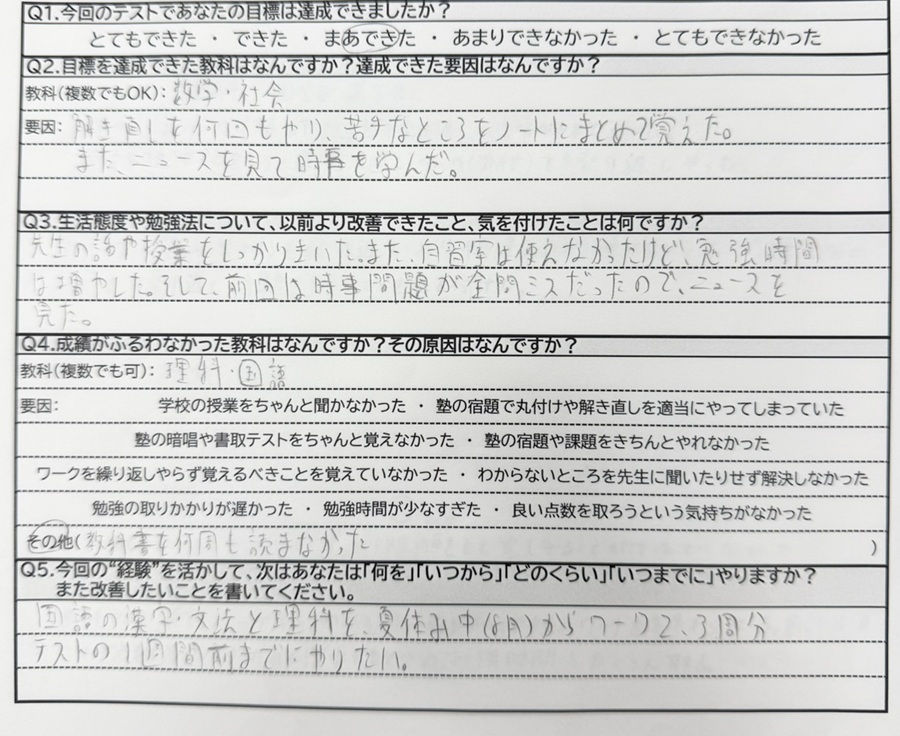 Q1.今回のテストであなたの目標は達成できましたか？
とてもできた ・ できた ・ まあできた ・ あまりできなかった ・ とてもできなかった
Q2.目標を達成できた教科はなんですか？達成できた要因はなんですか？
教科(複数でもOK)： 数学・社会
要因： 解き直しを何回もやり、苦手なところをノートにまとめて覚えた。
また、ニュースを見て時事を学んだ。
Q3.生活態度や勉強法について、以前より改善できたこと、気を付けたことは何ですか？
先生の話や授業をしっかりきいた。また、自習室は使えなかったけど、勉強時間
は増やした。そして、前回は時事問題が全問ミスだったので、ニュースを
見た。
Q4.成績がふるわなかった教科はなんですか？その原因はなんですか？
教科(複数でも可)： 理科・国語
要因： 学校の授業をちゃんと聞かなかった ・ 塾の宿題で丸付けや解き直しを適当にやってしまっていた
塾の暗唱や書取テストをちゃんと覚えなかった ・ 塾の宿題や課題をきちんとやれなかった
ワークを繰り返しやらず覚えるべきことを覚えていなかった ・ わからないところを先生に聞いたりせず解決しなかった
勉強の取りかかりが遅かった ・ 勉強時間が少なすぎた ・ 良い点数を取ろうという気持ちがなかった
その他(教科書を何周も読まなかった )
Q5.今回の“経験”を活かして、次はあなたは「何を」「いつから」「どのくらい」「いつまでに」やりますか？
また改善したいことを書いてください。
国語の漢字・文法と理科を、夏休み中(8月)からワーク2、3周分
テストの1週間前までにやりたい。